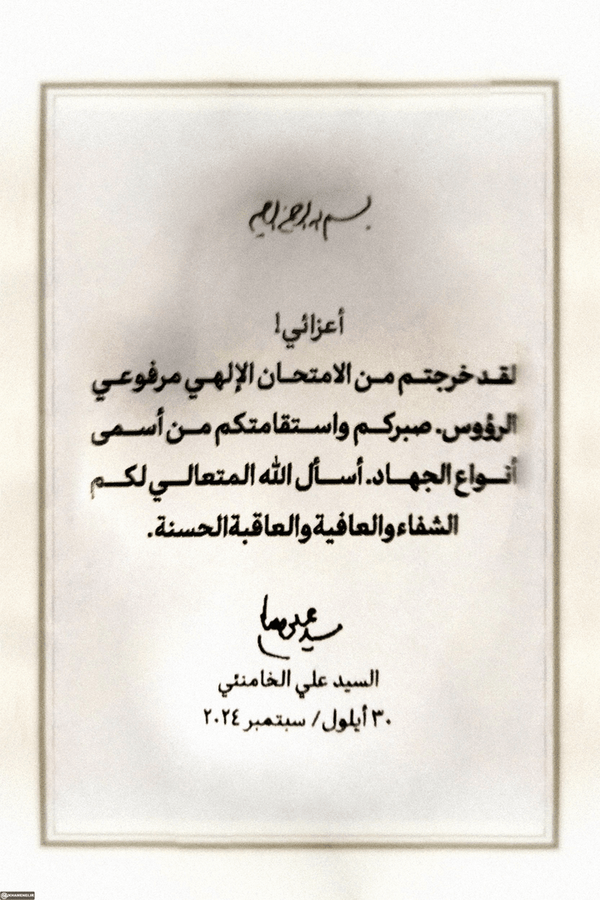 بسم الله الرحمن الرحيم
أعزائي!
لقد خرجتم من الامتحان الإلهي مرفوعي
الرؤوس. صبركم واستقامتكم من أسمى
أنواع الجهاد. أسأل الله المتعالي لكم
الشفاء والعافية والعاقبة الحسنة.
السيد علي الخامنئي
٣٠ أيلول/ سبتمبر ٢٠٢٤